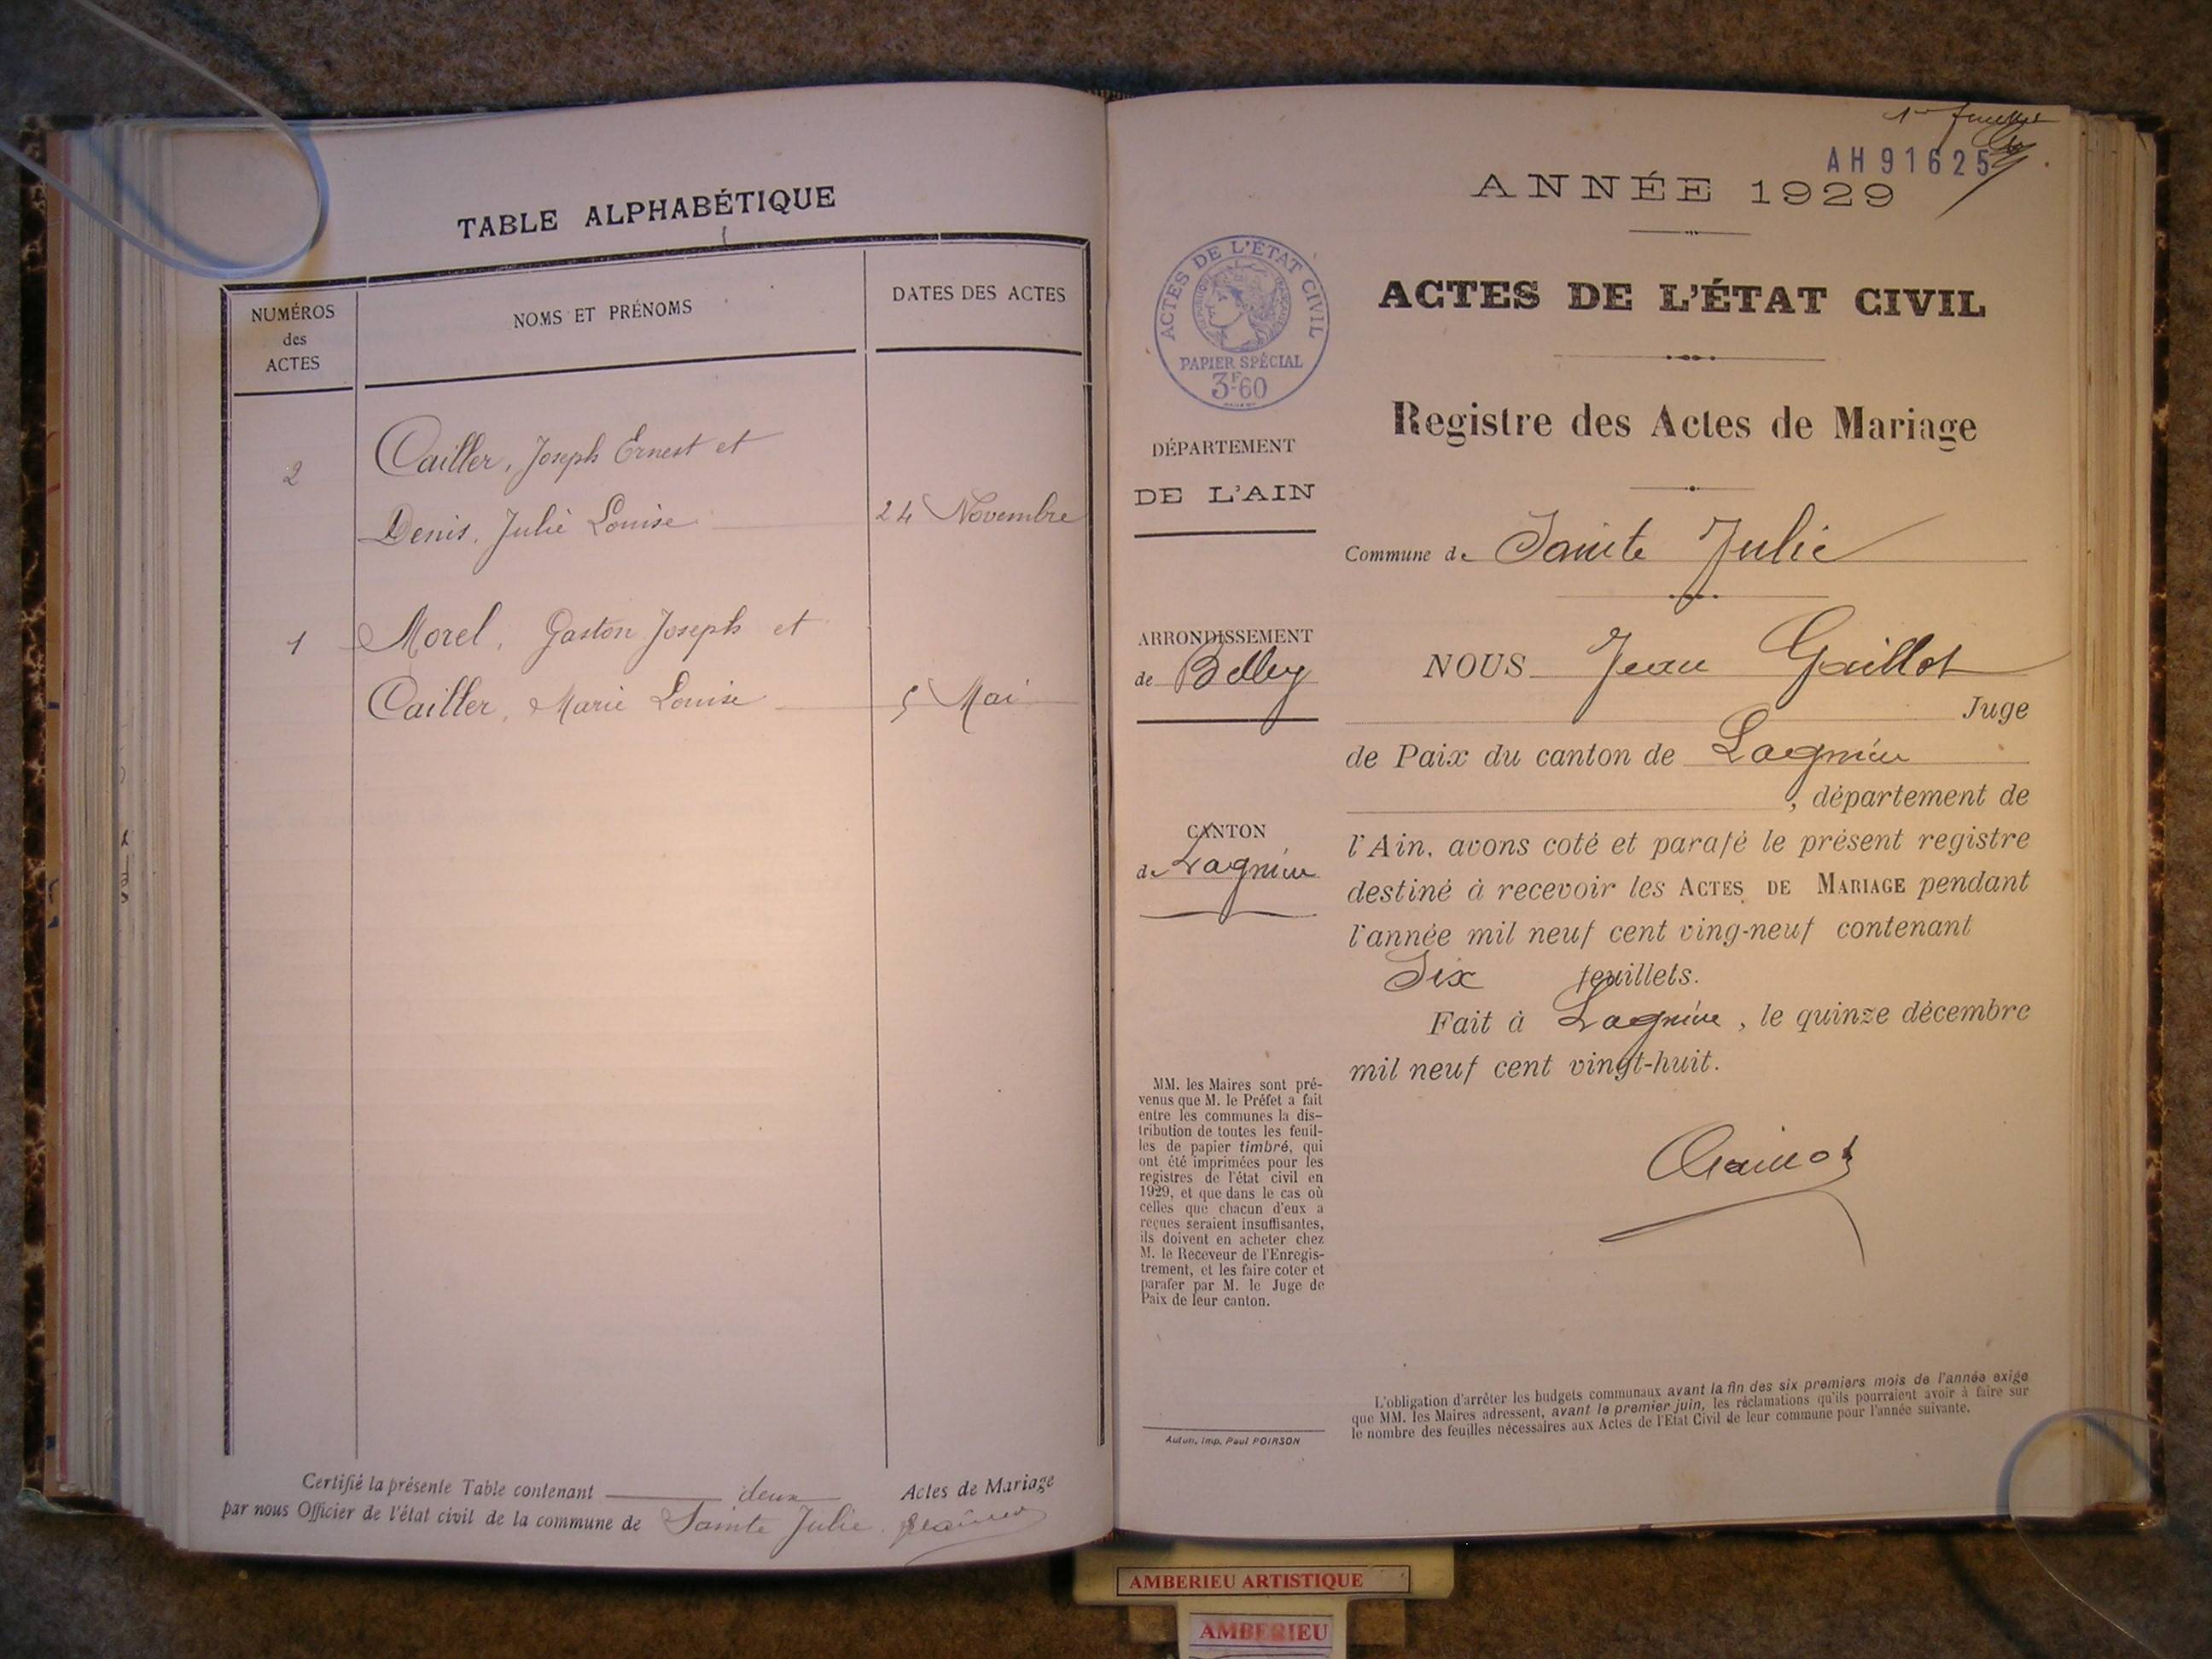 TABLE ALPHABÉTIQUE
NUMÉROS
des
ACTES
NOMS ET PRÉNOMS
DATES DES ACTES
2
Cailler, Joseph Ernest et
Denis, Julie Louise
24 Novembre
1
Morel, Gaston Joseph et
Cailler, Marie Louise
5 Mai
Certifié la présente Table contenant deux Actes de Mariage
par nous Officier de l'état civil de la commune de Sainte Julie.
1er feuillet
AH91625
ANNÉE 1929
ACTES DE L'ÉTAT CIVIL
PAPIER SPÉCIAL
3F60
ACTES DE L'ÉTAT CIVIL
Registre des Actes de Mariage
DÉPARTEMENT
DE L'AIN
Commune de Sainte Julie
ARRONDISSEMENT
de Belley
NOUS Jean Gaillot
Juge
de Paix du canton de Lagnieu
, département de
CANTON
de Lagnieu
l'Ain, avons coté et parafé le présent registre
destiné à recevoir les ACTES DE MARIAGE pendant
l'année mil neuf cent ving-neuf contenant
Six feuillets.
Fait à Lagnieu, le quinze décembre
mil neuf cent vingt-huit.
MM. les Maires sont pré-
venus que M. le Préfet a fait
entre les communes la dis-
tribution de toutes les feuil-
les de papier timbré, qui
ont été imprimées pour les
registres de l'état civil en
1929, et que dans le cas où
celles que chacun d'eux a
reçues seraient insuffisantes,
ils doivent en acheter chez
M. le Receveur de l'Enregis-
trement, et les faire coter et
parafer par M. le Juge de
Paix de leur canton.
Autun, imp. Paul POIRSON
L'obligation d'arrêter les budgets communaux avant la fin des six premiers mois de l'année exige
que MM. les Maires adressent, avant le premier juin, les réclamations qu'ils pourraient avoir à faire sur
le nombre des feuilles nécessaires aux Actes de l'Etat Civil de leur commune pour l'année suivante.
AMBERIEU ARTISTIQUE
AMBERIEU